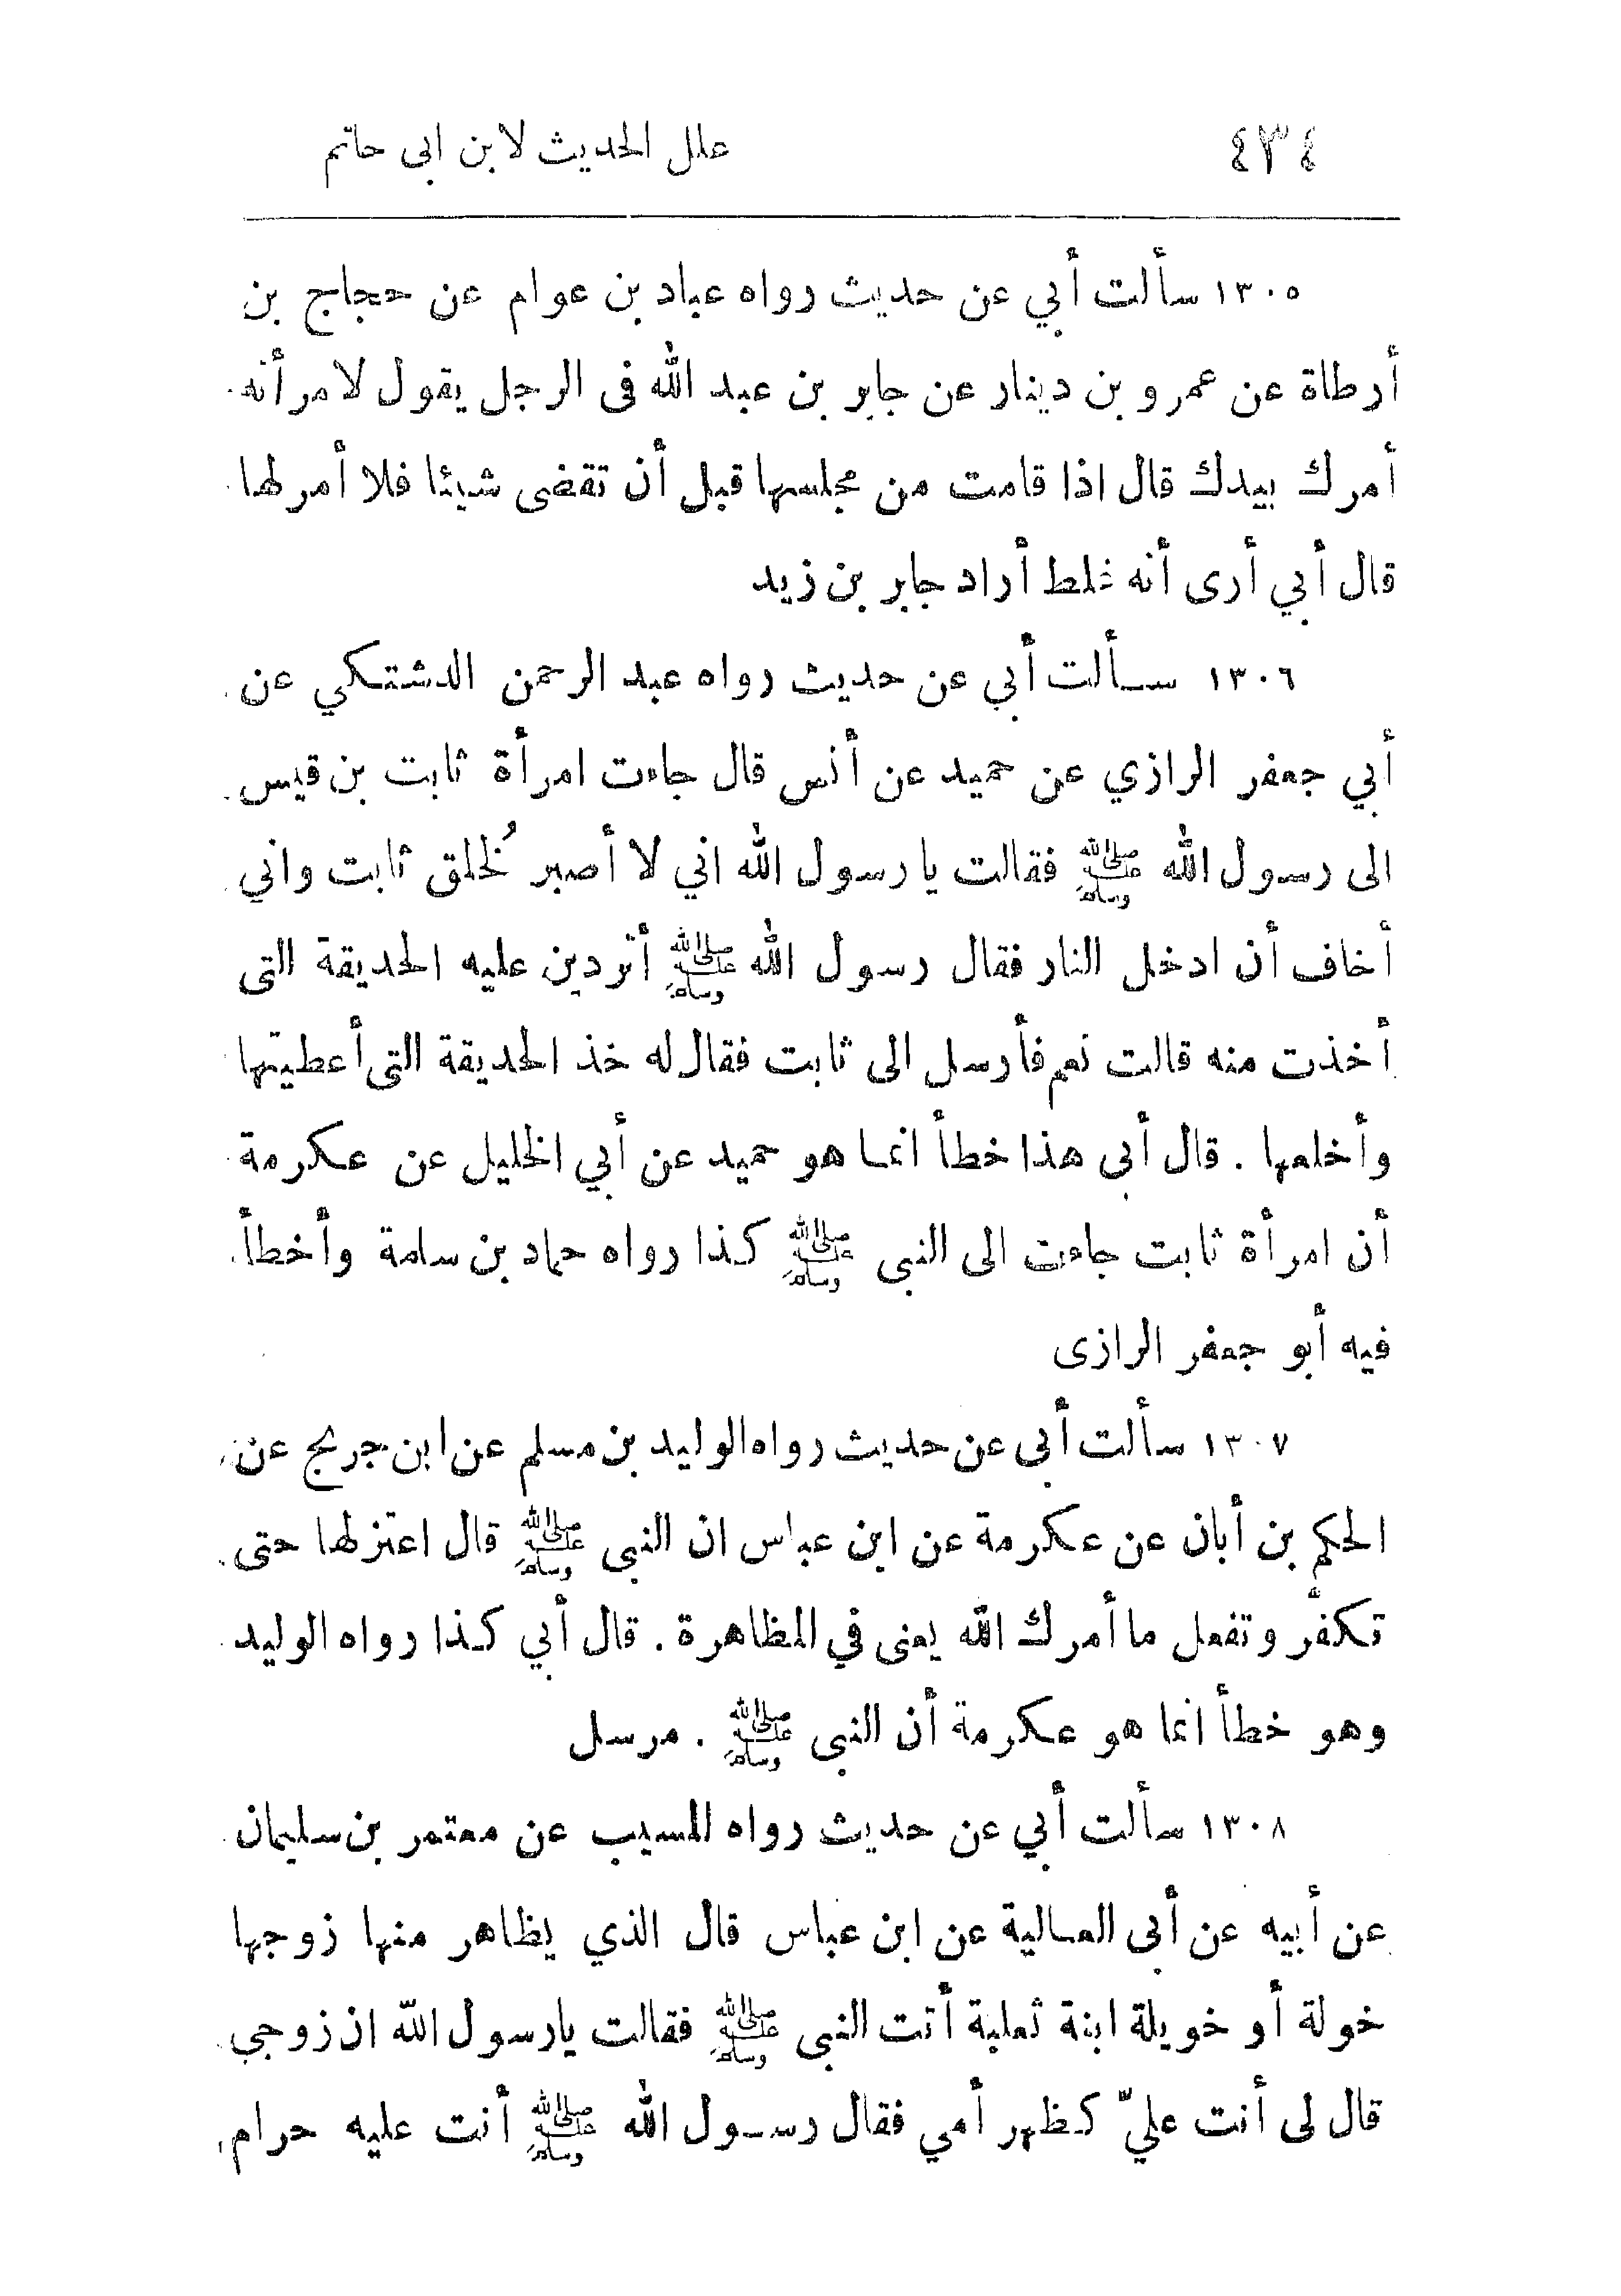 ٤٣٤ علل الحديث لابن ابى حاتم
١٣٠٥ سألت أبي عن حديث رواه عباد بن عوام عن حجاج بن
أرطاة عن عمرو بن دينار عن جابر بن عبد الله فى الرجل يقول لامرأته
أمرك بيدك قال اذا قامت من مجلسها قبل أن تقضى شيئا فلا أمر لها
قال أبي أرى أنه غلط أراد جابر بن زيد
١٣٠٦ سألت أبي عن حديث رواه عبد الرحمن الدشتكي عن
أبي جعفر الرازي عن حميد عن أنس قال جاءت امرأة ثابت بن قيس
الى رسول الله ﷺ فقالت يا رسول الله اني لا أصبر لخُلق ثابت واني
أخاف أن ادخل النار فقال رسول الله ﷺ أتردين عليه الحديقة التى
أخذت منه قالت نعم فأرسل الى ثابت فقال له خذ الحديقة التى أعطيتها
وأخلعها . قال أبى هذا خطأ انما هو حميد عن أبي الخليل عن عكرمة
أن امرأة ثابت جاءت الى النبى ﷺ كذا رواه حماد بن سلمة وأخطأ
فيه أبو جعفر الرازى
١٣٠٧ سألت أبى عن حديث رواه الوليد بن مسلم عن ابن جريج عن
الحكم بن أبان عن عكرمة عن ابن عباس ان النبى ﷺ قال اعتزلها حتى
تكفّر وتفعل ما أمرك الله يعنى في المظاهرة . قال أبي كذا رواه الوليد
وهو خطأ انما هو عكرمة أن النبى ﷺ . مرسل
١٣٠٨ سألت أبي عن حديث رواه المسيب عن معتمر بن سليمان
عن أبيه عن أبى العالية عن ابن عباس قال الذي يظاهر منها زوجها
خولة أو خويلة ابنة ثعلبة أتت النبى ﷺ فقالت يا رسول الله ان زوجي
قال لى أنت عليّ كظهر أمي فقال رسول الله ﷺ أنت عليه حرام